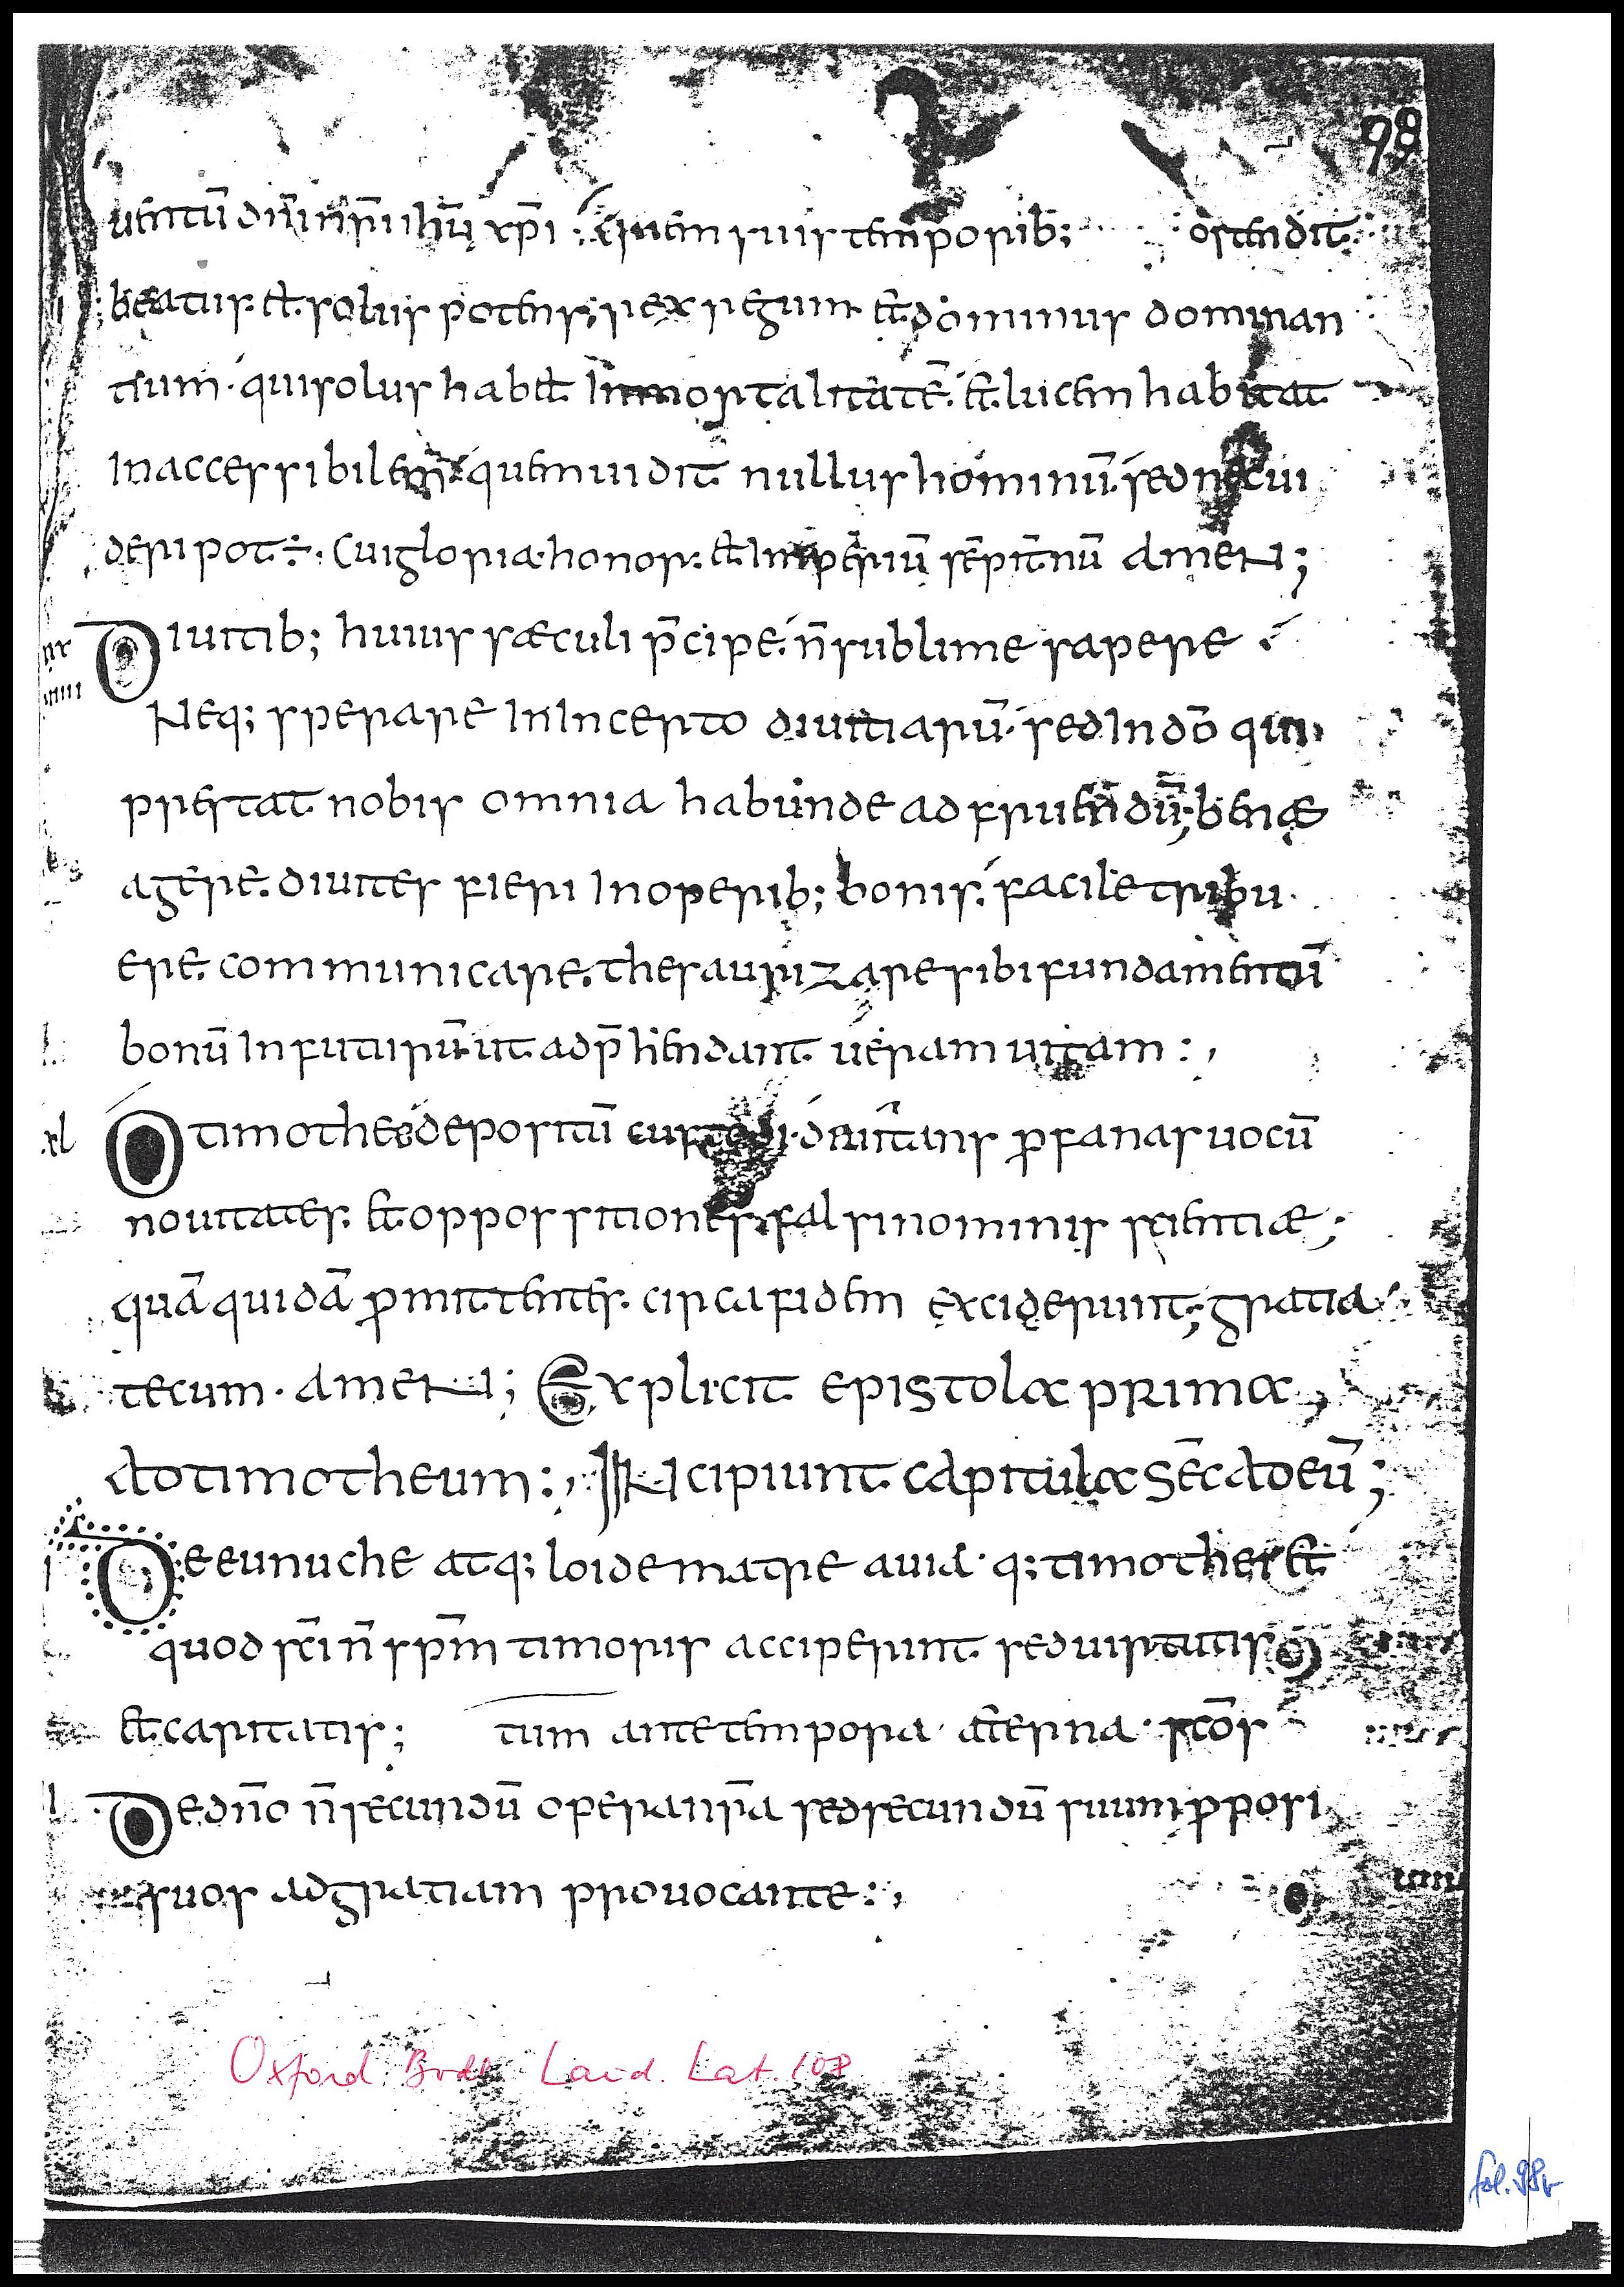 98
uentū dn̄i nr̄i ihū xp̄i quem suis temporib; ostendit
beatus et solus potens; rex regum et dominus dominan
tium. qui solus habet Inmortalitatē. et lucem habitat
Inaccessibilem quem uidit nullus hominū. sed nec ui
deri pot÷. Cui gloria. honor. et Imperiū sēpit̄nū amen;
Diuitib; huius sæculi p̄cipe. n̄ sublime sapere
Neq; sperare In Incerto diuitiarū. sed In dō qui
prestat nobis omnia habunde ad fruendū; benæ
agere. diuites fieri In operib; bonis. facile tribu
ere. communicare. thesaurizare sibi fundamentū
bonū In futurū ut adp̄hendant ueram uitam :,
xl
O timothee depositū custodi. deuitans ꝓfanas uocū
nouitates. et oppossitiones. falsi nominis scientiæ;
quā quidā ꝓmittentes. circa fidem exciderunt; gratia
tecum. amen; Explicit epistola prima,
ad timotheum:, Incipiunt capitula sēc ad eū;
De eunuche atq; loide matre auia. q; timothei et
quod sc̄i n̄ sp̄m timoris acciperunt sed uirtutis
et caritatis; tum ante tempora æterna. scōs
De dn̄o n̄ secundū opera nr̄a sed secundū suum ꝓposi
suos ad gratiam prouocante:,
Oxford Bodl. Laud. Lat. 108
fol. 98r